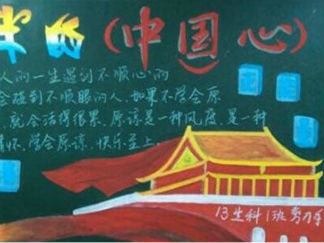 的(中国心)
人的一生遇到不顺心的
会碰到不顺眼的人,如果不学会原
,就会活得很累.原谅是一种风度,是一种
情怀,学会原谅,快乐至上.
13生科1班